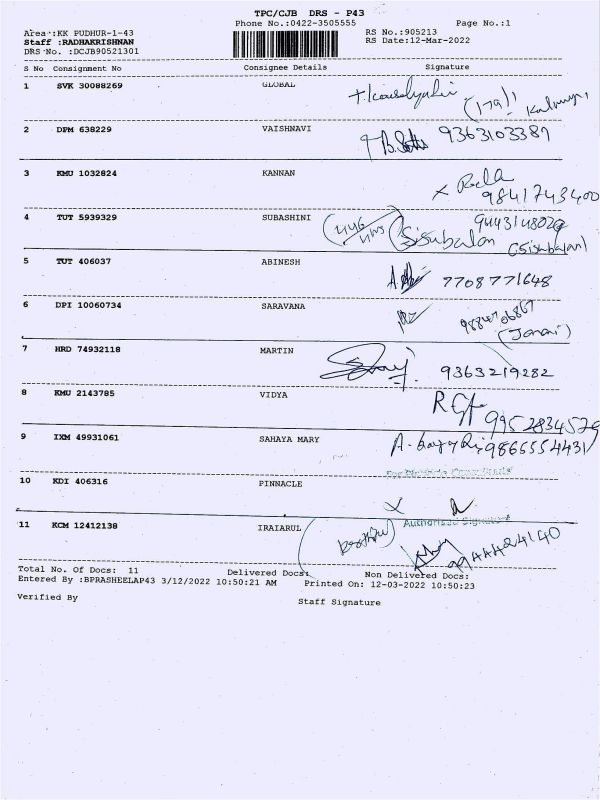 TPC/CJB DRS - P43
Phone No.:0422-3505555 Page No.:1
Area :KK PUDHUR-1-43 RS No.:905213
Staff :RADHAKRISHNAN RS Date:12-Mar-2022
DRS No. :DCJB90521301
S No Consignment No Consignee Details Signature
1 SVK 30088269 GLOBAL
2 DPM 638229 VAISHNAVI 9363103387
3 KMU 1032824 KANNAN 9841743400
4 TUT 5939329 SUBASHINI 9443148029
Sisubalan (Sisubalan)
5 TUT 406037 ABINESH 7708771648
6 DPI 10060734 SARAVANA 9884706867
(Janani)
7 HRD 74932118 MARTIN 9363219282
8 KMU 2143785 VIDYA 9952834529
9 IXM 49931061 SAHAYA MARY 9865554431
10 KDI 406316 PINNACLE
Authorised Signature
11 KCM 12412138 IRAIARUL
Total No. Of Docs: 11 Delivered Docs: Non Delivered Docs:
Entered By :BPRASHEELAP43 3/12/2022 10:50:21 AM Printed On: 12-03-2022 10:50:23
Verified By Staff Signature